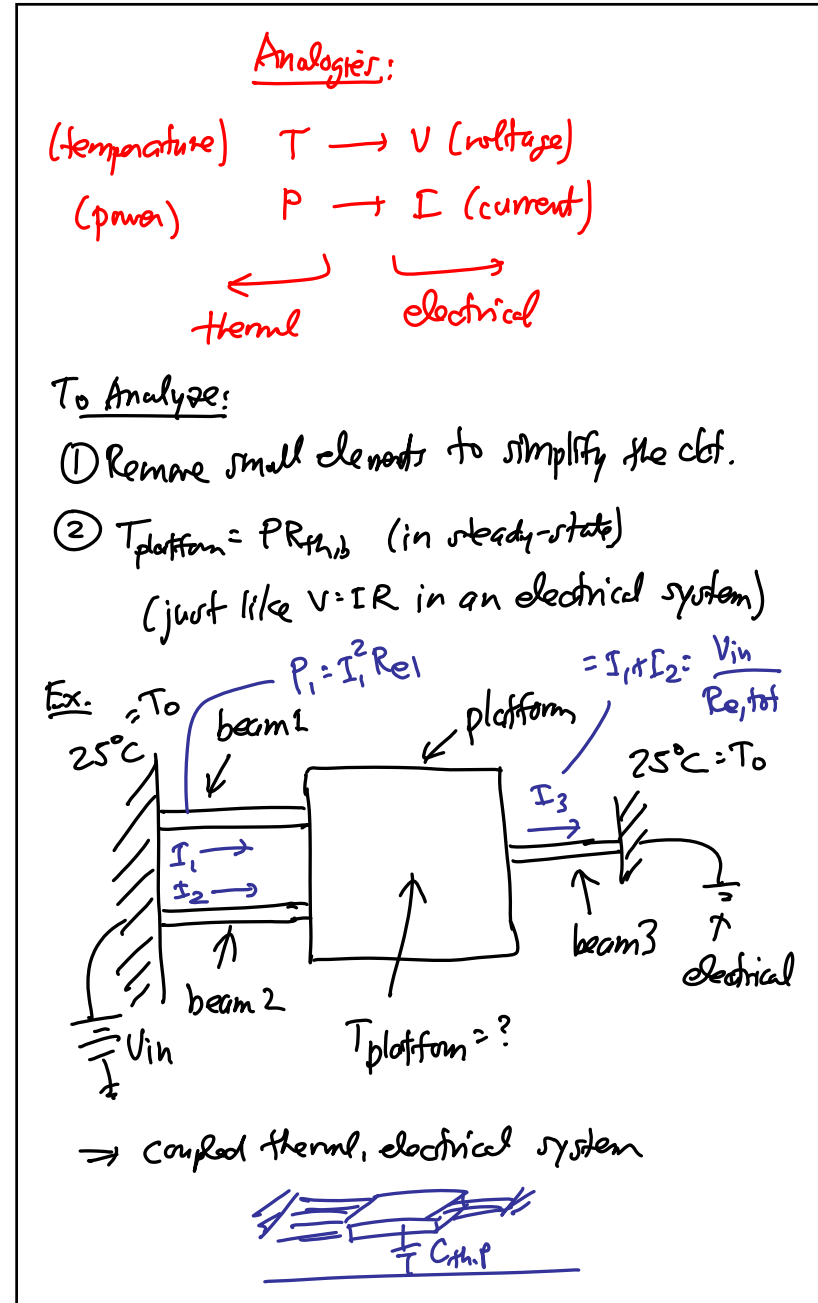 Analogies:
(temperature) T → V (voltage)
(power) P → I (current)
thermal electrical
To Analyze:
① Remove small elements to simplify the ckt.
② Tplatform = PRth,b (in steady-state)
(just like V=IR in an electrical system)
P₁ = I₁²Re1
= I₁+I₂ = Vin / Re,tot
Ex.
= T₀
25°C
beam 1
platform
25°C = T₀
I₃
I₁ →
I₂ →
beam 2
beam 3
electrical
Vin
Tplatform = ?
⇒ coupled thermal, electrical system
Cth,p